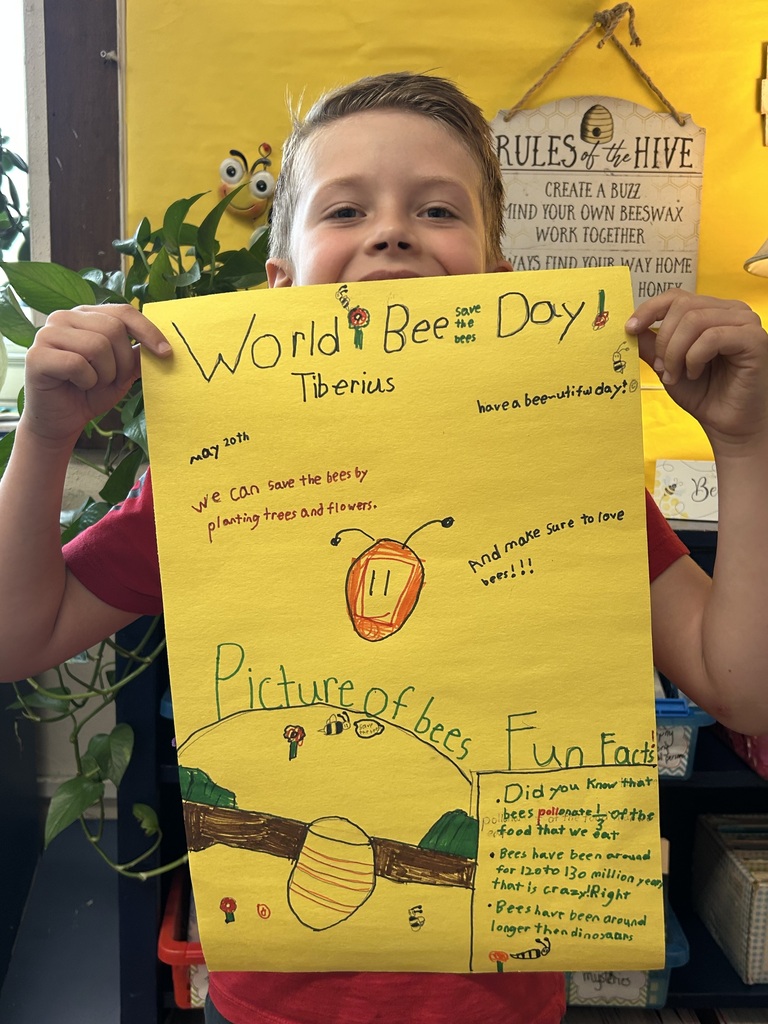 RULES of the HIVE
CREATE A BUZZ
MIND YOUR OWN BEESWAX
WORK TOGETHER
WAYS FIND YOUR WAY HOME
HONEY
World Bee Day!
save
the
bees
Tiberius
have a bee-utiful day!
may 20th
We can save the bees by
planting trees and flowers.
And make sure to love
bees!!!
Picture of bees
Fun Facts!
• Did you know that
bees pollonate 1/3 of the
food that we eat
• Bees have been around
for 120 to 130 million year
that is crazy! Right
• Bees have been around
longer then dinosaurs
Be
mysteries